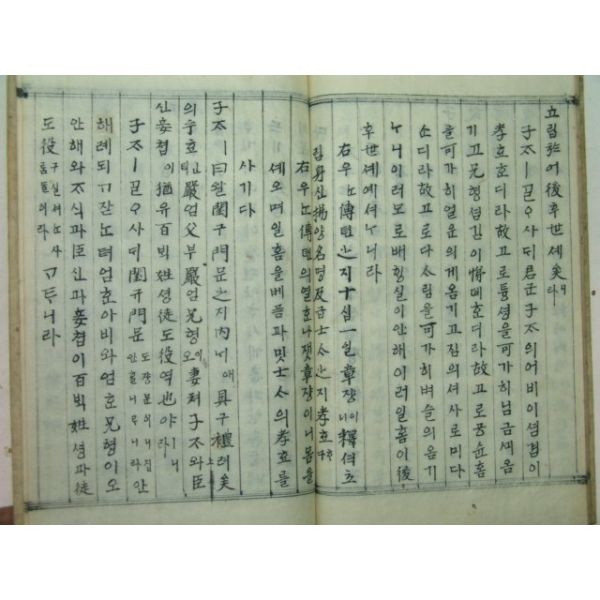 立립於어後후世셰矣의니라
子ᄌᆞㅣᄀᆞᆯᄋᆞ사ᄃᆡ君군子ᄌᆞ의어버이셤김이
孝효호디라故고로튱셩을可가히님금ᄭᅴ옴
기고兄형셤김이悌뎨호디라故고로공슌홈
을可가히얼운의게옴기고집의셔사로미다
ᄉᆞ디라故고로다ᄉᆞ림을可가히벼슬의옴기
ᄂᆞ니이러모로ᄡᅥᄒᆡᆼ실이안해이러일홈이後
후世셰예셔ᄂᆞ니라
右우ᄂᆞᆫ傳뎐之지十십一일章쟝이니釋셕立
립身신揚양名명及급士ᄉᆞ之지孝효ᄒᆞ다
右우ᄂᆞᆫ傳뎐의열ᄒᆞ나잿章쟝이니몸을
셰오며일홈을베픔과밋士ᄉᆞ의孝효를
사기다
子ᄌᆞㅣ曰왈閨규門문之지內ᄂᆡ애具구禮례矣
의乎호ᄂᆡ뎌嚴엄父부嚴엄兄형이오妻쳐子ᄌᆞ와臣
신妾쳡이猶유百ᄇᆡᆨ姓셩徒도役역也야ㅣ니라
子ᄌᆞㅣᄀᆞᆯᄋᆞ사ᄃᆡ閨규門문도쟝문이니집안흘니ᄅᆞ니라안
해례되ᄀᆞ잔ᄂᆞ뎌엄호아비와엄호兄형이오
안해와ᄌᆞ식과臣신과妾쳡이百ᄇᆡᆨ姓셩과徒
도役역ᄀᆞᄐᆞ니라